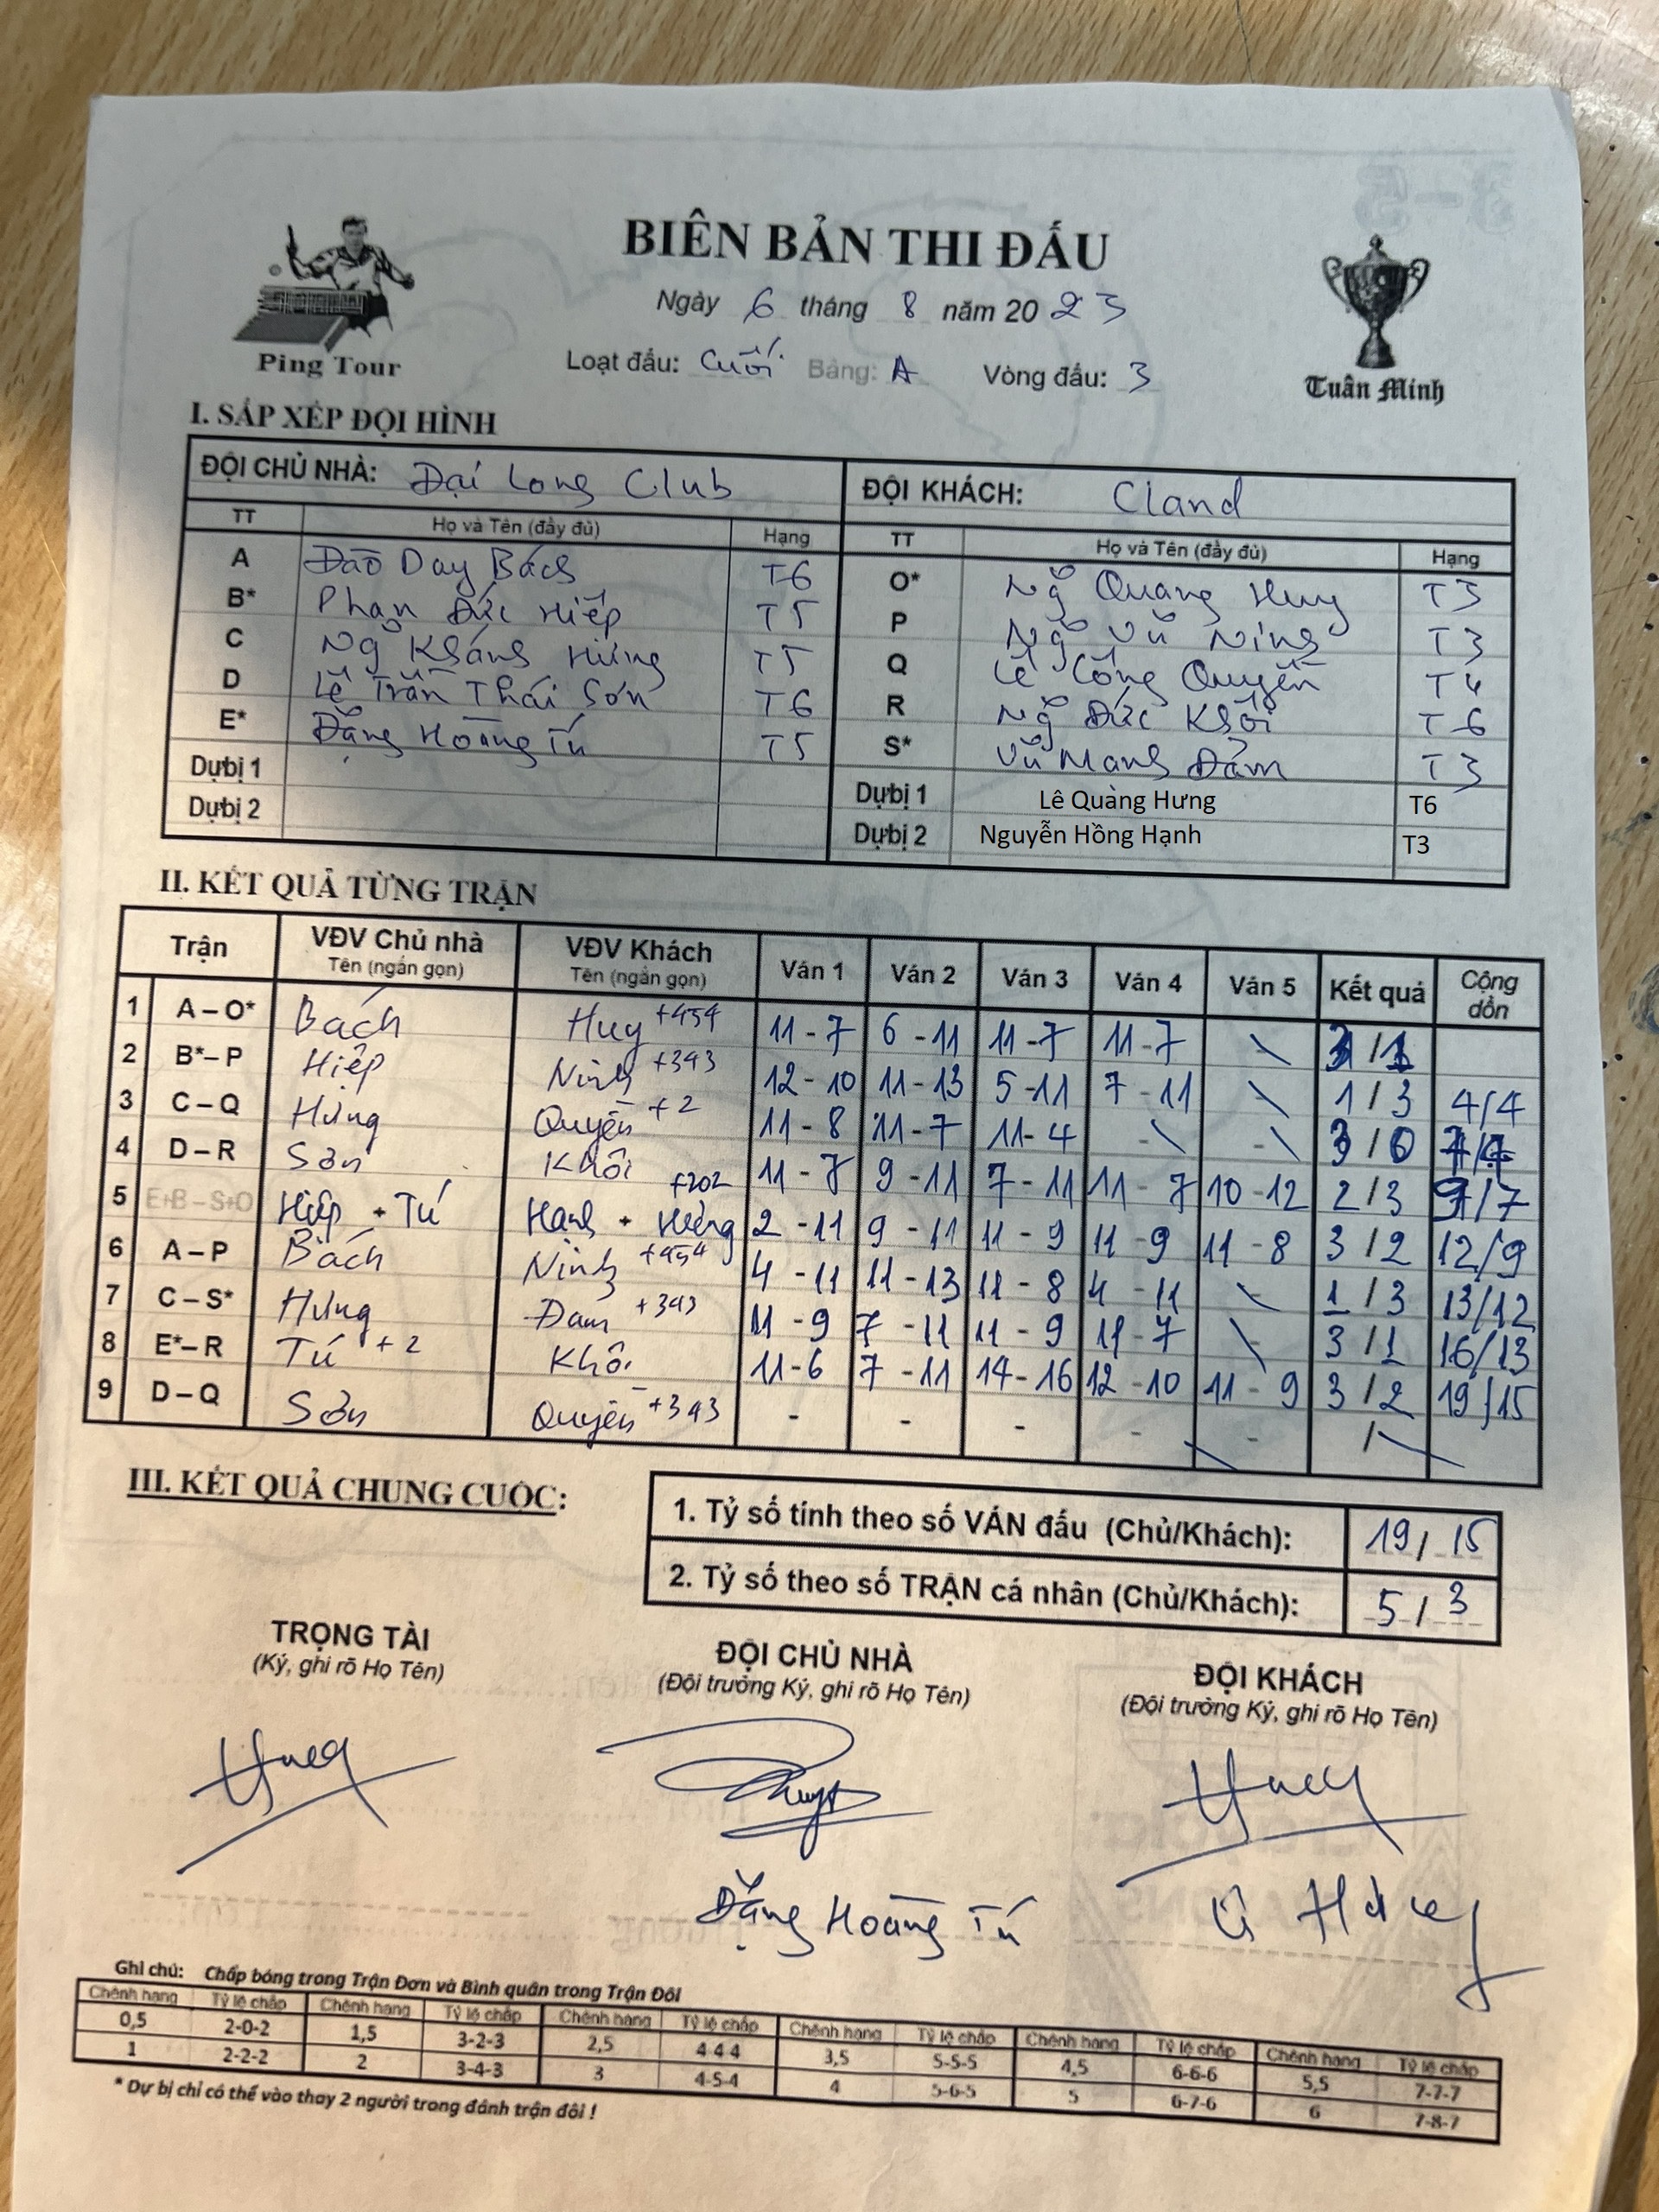 BIÊN BẢN THI ĐẤU
Ngày 6 tháng 8 năm 2023
Loạt đấu: Cuối Bảng: A Vòng đấu: 3
Ping Tour
Tuấn Minh
I. SẮP XẾP ĐỘI HÌNH
ĐỘI CHỦ NHÀ: Đại Long Club ĐỘI KHÁCH: Cland
TT Họ và Tên (đầy đủ) Hạng TT Họ và Tên (đầy đủ) Hạng
A Đào Duy Bách T6 O* Ng̃ Quang Huy T3
B* Phan Đức Hiếp T5 P Ng̃ Vũ Ninh T3
C Ng̃ Khánh Hưng T5 Q Lê Công Quyền T4
D Lê Trần Thái Sơn T6 R Ng̃ Đức Khôi T6
E* Đặng Hoàng Tú T5 S* Vũ Mạnh Đảm T3
Dựbị 1 Dựbị 1 Lê Quàng Hưng T6
Dựbị 2 Dựbị 2 Nguyễn Hồng Hạnh T3
II. KẾT QUẢ TỪNG TRẬN
Trận VĐV Chủ nhà VĐV Khách Ván 1 Ván 2 Ván 3 Ván 4 Ván 5 Kết quả Cộng dồn
Tên (ngắn gọn) Tên (ngắn gọn)
1 A – O* Bách Huy +454 11 - 7 6 - 11 11 - 7 11 - 7 3 / 1
2 B* – P Hiệp Ninh +343 12 - 10 11 - 13 5 - 11 7 - 11 1 / 3 4/4
3 C – Q Hưng Quyền +2 11 - 8 11 - 7 11 - 4 - - 3 / 0
4 D – R Sơn Khôi 11 - 8 9 - 11 7 - 11 11 - 7 10 - 12 2 / 3 9/7
5 E+B – S+O Hiệp + Tú Hạnh + Hưng +202 2 - 11 9 - 11 11 - 9 11 - 9 11 - 8 3 / 2 12/9
6 A – P Bách Ninh +454 4 - 11 11 - 13 11 - 8 4 - 11 1 / 3 13/12
7 C – S* Hưng Đam +343 11 - 9 7 - 11 11 - 9 11 - 7 3 / 1 16/13
8 E* – R Tú +2 Khôi 11 - 6 7 - 11 14 - 16 12 - 10 11 - 9 3 / 2 19/15
9 D – Q Sơn Quyền +343 - - - - - /
III. KẾT QUẢ CHUNG CUỘC:
1. Tỷ số tính theo số VÁN đấu (Chủ/Khách): 19 / 15
2. Tỷ số theo số TRẬN cá nhân (Chủ/Khách): 5 / 3
TRỌNG TÀI
(Ký, ghi rõ Họ Tên)
ĐỘI CHỦ NHÀ
(Đội trưởng Ký, ghi rõ Họ Tên)
ĐỘI KHÁCH
(Đội trưởng Ký, ghi rõ Họ Tên)
Đặng Hoàng Tú
Ghi chú: Chấp bóng trong Trận Đơn và Bình quân trong Trận Đôi
Chênh hạng Tỷ lệ chấp Chênh hạng Tỷ lệ chấp Chênh hạng Tỷ lệ chấp Chênh hạng Tỷ lệ chấp Chênh hạng Tỷ lệ chấp Chênh hạng Tỷ lệ chấp
0,5 2-0-2 1,5 3-2-3 2,5 4-4-4 3,5 5-5-5 4,5 6-6-6 5,5 7-7-7
1 2-2-2 2 3-4-3 3 4-5-4 4 5-6-5 5 6-7-6 6 7-8-7
* Dự bị chỉ có thể vào thay 2 người trong đánh trận đôi !